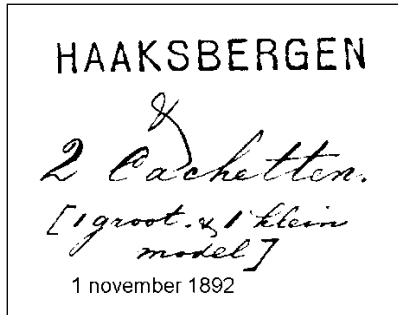 HAAKSBERGEN
&
2 Cachetten.
[1 groot. & 1 klein
model]
1 november 1892